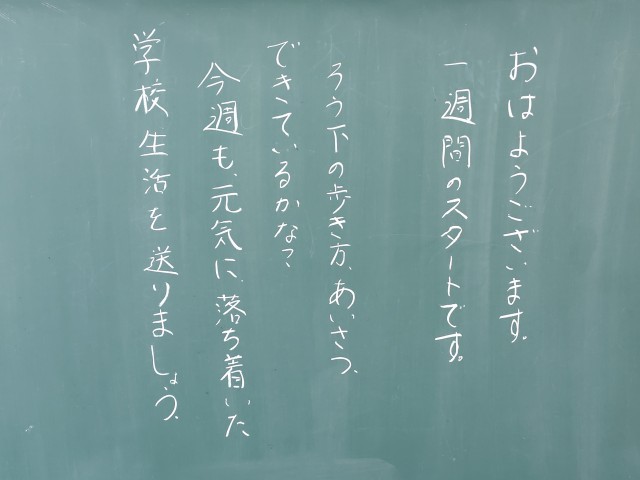 おはようございます。
一週間のスタートです。
ろう下の歩き方、あいさつ、
できているかな？
今週も、元気に、落ち着いた
学校生活を送りましょう。